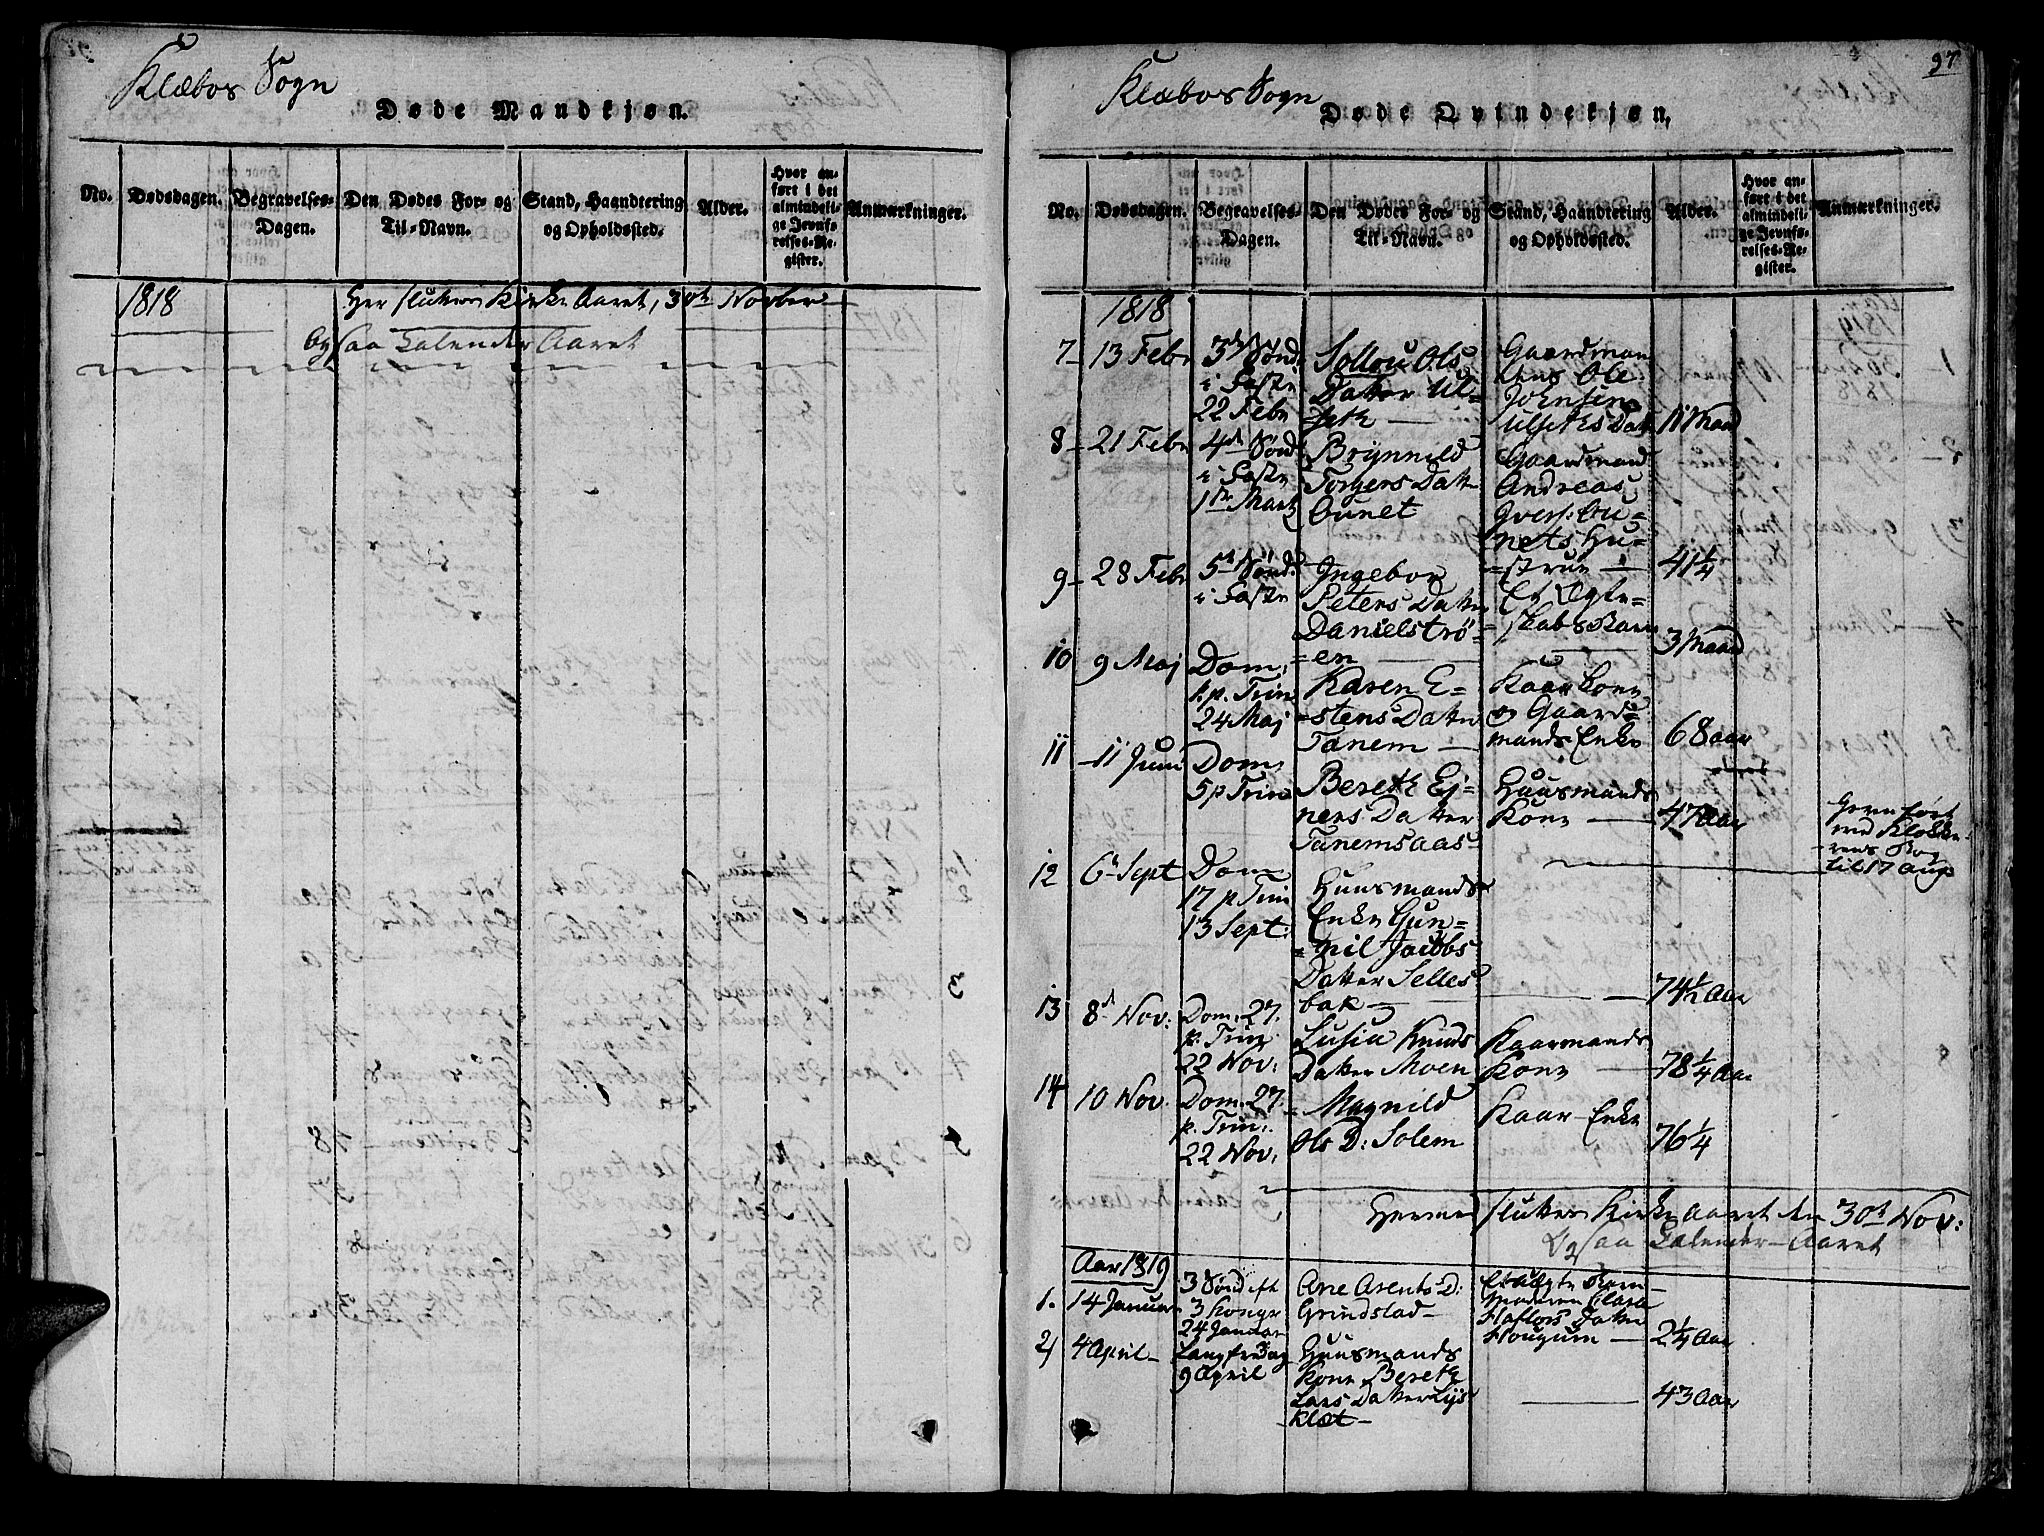 Klæbos Sogn
Døde Mandkjøn.
No.
Dødsdagen.
Begravelses-
Dagen.
Den Dødes For- og
Til-Navn.
Stand, Haandtering
og Opholdssted.
Alder.
Hvor an-
ført i det
almindeli-
ge Jevnfø-
relses-Re-
gister.
Anmærkninger.
1818
Her slutter Kirke Aaret, 30te Novber
Ogsaa Calender Aaret
97
Klæbos Sogn
Døde Qvindekjøn.
No.
Dødsdagen.
Begravelses-
Dagen.
Den Dødes For- og
Til-Navn.
Stand, Haandtering
og Opholdssted.
Alder.
Hvor an-
ført i det
almindeli-
ge Jevnfø-
relses-Re-
gister.
Anmærkninger.
1818
7 13 Febr
3die Sønd.
i Faste
22 Febr
Sollou Ols
Datter Ul-
seth
Gaardman
dens Ole
Johnsen
Ulseths Datt
11 Maad
8 21 Febr
4de Sønd
i Faste
1ste Martz
Brynnild
Torgers Datt
bunet
Gaardmand
Andreas
Iversf: bu-
nets Hu-
=strue
41 1/4
9 28 Febr
5te Sønd.
i Faste
Ingebor
Peters Datter
Danielströ-
=en
Et Ægte-
skabs Barn
3 Maad
10 9 Maj
Dom.
1 p. Trin
24 Maj
Karen E=
=stens Datter
Tanem
Kaar Kone
og Gaard-
mands Enke
68 aar
11 11 Juni
Dom.
5 p Trin
Bereth Ej-
ners Datter
Tanemsaas
Huusmands
Kone
47 Aar
Conferført
med Klokke-
rens Bog
til 17 Aug
12 6te Sept
Dom
17 p Trin
13 Sept:
Huusmands
Enke Gun-
=nil Jacobs
Datter Selles
bak
74 1/2 Aar
13 8de Nov:
Dom. 27.
p. Trin:
22 Nov:
Lusia Knuds
Datter Moen
Kaarmands
Kone
78 1/4 Aar
14 10 Nov.
Dom. 27.
p. Trin:
22 Nov:
Magnild
Ols D: Solem
Kaar-Enke
76 1/4
Hermed slutter Kirke Aaret den 30te Nov:
Ogsaa Calender-Aaret
Aar 1819
1. 14 Januar
3 Sønd eft
3 Konger
24 Januar
Ane Arents D:
Grindstad
Et uægte Barn
Moderen Clara
Haflors Datter
Hougum
2 1/4 Aar
2) 4 April
Langfredag
9 April
Huusmands
Kone Bereth
Lars Datter Lys
klæt
43 Aar